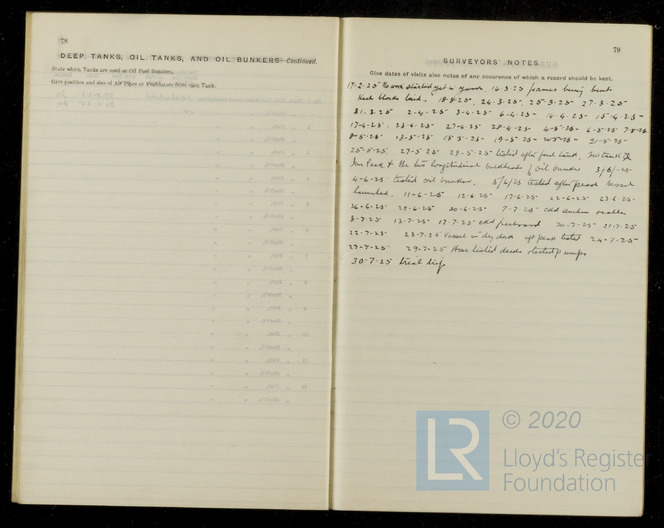 78
DEEP TANKS, OIL TANKS, AND OIL BUNKERS—Continued.
State when Tanks are used as Oil Fuel Bunkers.
Give position and size of Air Pipes or Ventilators from each Tank.
79
SURVEYORS' NOTES
Give dates of visits also notes of any occurence of which a record should be kept.
17-2-25 No work started yet 14-3-25 frames being bent
Keel blocks laid. 18-3-25. 24-3-25. 25-3-25 27-3-25
31.3.25 2-4-25 3-4-25 6-4-25 14-4-25 15-4-25
17-4-25. 23-4-25 27-4-25 28-4-25 4-5-25 6-5-25 7-5-25
8-5-25 13-5-25 15-5-25 19-5-25 20-5-25 21-5-25
25-5-25. 27-5-25 29-5-25 tested after fuel tank.
Fore Peak & the two longitudinal bulkheads of oil bunker 3/6/25
4-6-25 tested oil bunker. 5/6/25 tested after peak vessel
launched. 11-6-25 12-6-25 17-6-25 22-6-25 23-6-25
26-6-25 29-6-25 30-6-25 7-7-25
8-7-25 13-7-25 17-7-25 freeboard 20-7-25 21-7-25
22-7-25 23-7-25 Vessel in dry dock aft peak tested 24-7-25
27-7-25 29-7-25 Hose tested decks tested pumps
30-7-25 trial trip
LR
© 2020
Lloyd's Register
Foundation